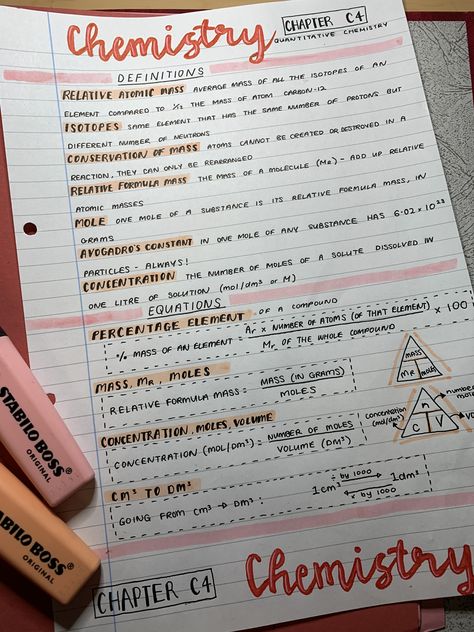 Chemistry
CHAPTER C4
QUANTITATIVE CHEMISTRY
DEFINITIONS
RELATIVE ATOMIC MASS AVERAGE MASS OF ALL THE ISOTOPES OF AN
ELEMENT COMPARED TO 1/12 THE MASS OF ATOM CARBON-12
ISOTOPES SAME ELEMENT THAT HAS THE SAME NUMBER OF PROTONS BUT
DIFFERENT NUMBER OF NEUTRONS
CONSERVATION OF MASS ATOMS CANNOT BE CREATED OR DESTROYED IN A
REACTION, THEY CAN ONLY BE REARRANGED
RELATIVE FORMULA MASS THE MASS OF A MOLECULE (MR) - ADD UP RELATIVE
ATOMIC MASSES
MOLE ONE MOLE OF A SUBSTANCE IS ITS RELATIVE FORMULA MASS, IN
GRAMS
AVOGADRO'S CONSTANT IN ONE MOLE OF ANY SUBSTANCE HAS 6.02 x 10²³
PARTICLES - ALWAYS!
CONCENTRATION THE NUMBER OF MOLES OF A SOLUTE DISSOLVED IN
ONE LITRE OF SOLUTION (mol/dm³ or M)
EQUATIONS
PERCENTAGE ELEMENT - OF A COMPOUND
% MASS OF AN ELEMENT = Ar x NUMBER OF ATOMS (OF THAT ELEMENT) x 100
Mr OF THE WHOLE COMPOUND
MASS, MR, MOLES
RELATIVE FORMULA MASS = MASS (IN GRAMS)
MOLES
MASS
MR moles
CONCENTRATION, MOLES, VOLUME
CONCENTRATION (MOL/DM³) = NUMBER OF MOLES
VOLUME (DM³)
concentration
(mol/dm³)
number
n
C V
CM³ TO DM³
GOING FROM CM³ → DM³:
÷ by 1000
1cm³ 1dm³
x by 1000
CHAPTER C4
Chemistry
STABILO BOSS
ORIGINAL
STABILO BOSS
ORIGINAL